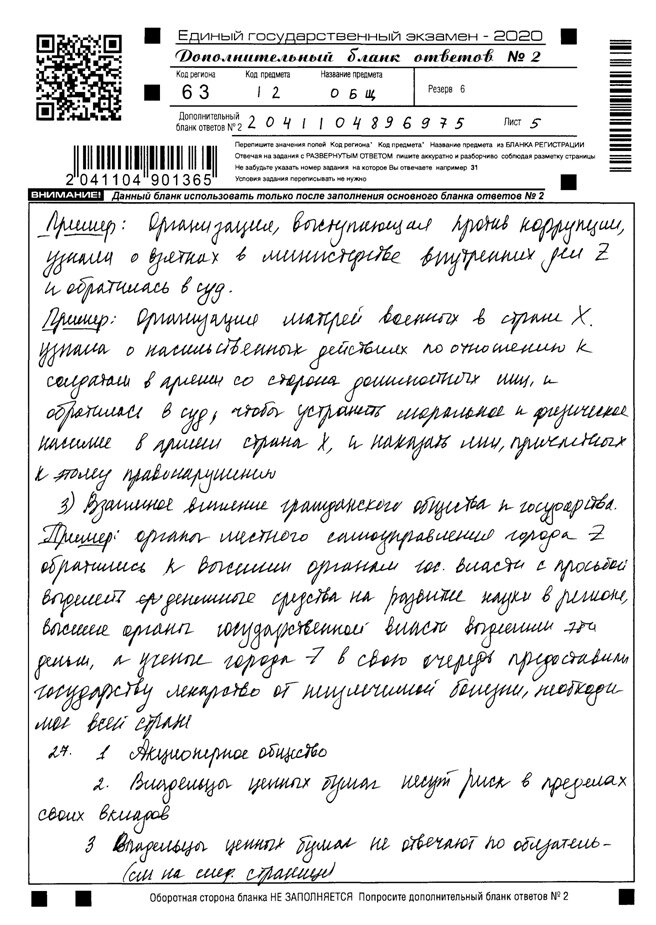 Единый государственный экзамен - 2020
Дополнительный бланк ответов № 2
Код региона Код предмета Название предмета
Резерв 6
63 12 ОБЩ
Дополнительный бланк ответов № 2 2041104896975 Лист 5
Перепишите значения полей Код региона" Код предмета" Название предмета из БЛАНКА РЕГИСТРАЦИИ
Отвечая на задания с РАЗВЕРНУТЫМ ОТВЕТОМ пишите аккуратно и разборчиво соблюдая разметку страницы
Не забудьте указать номер задания на которое Вы отвечаете например 31
Условия задания переписывать не нужно
2 041104 901365
ВНИМАНИЕ! Данный бланк использовать только после заполнения основного бланка ответов № 2
Пример: Организация, выступающая против коррупции,
узнала о взятках в министерстве внутренних дел Z
и обратилась в суд.
Пример: Организация матерей военных в стране X.
узнала о насильственных действиях по отношению к
солдатам в армии со сторона должностных лиц, и
обратилась в суд, чтобы устранить моральное и физическое
насилие в армии страна X, и наказать лиц, причастных
к этому правонарушению
3) Взаимное влияние гражданского общества и государства.
Пример: органы местного самоуправления города Z
обратились к высшим органам гос. власти с просьбой
выделить денежные средства на развитие науки в регионе,
высшие органы государственной власти выделили эти
деньги, а ученые города Z в свою очередь предоставили
государству лекарство от неизлечимой болезни, необходи
мое всей стране
27. 1 Акционерное общество
2. Владельцы ценных бумаг несут риск в пределах
своих вкладов
3 Владельцы ценных бумаг не отвечают по обязатель-
(см на след. странице)
Оборотная сторона бланка НЕ ЗАПОЛНЯЕТСЯ Попросите дополнительный бланк ответов № 2